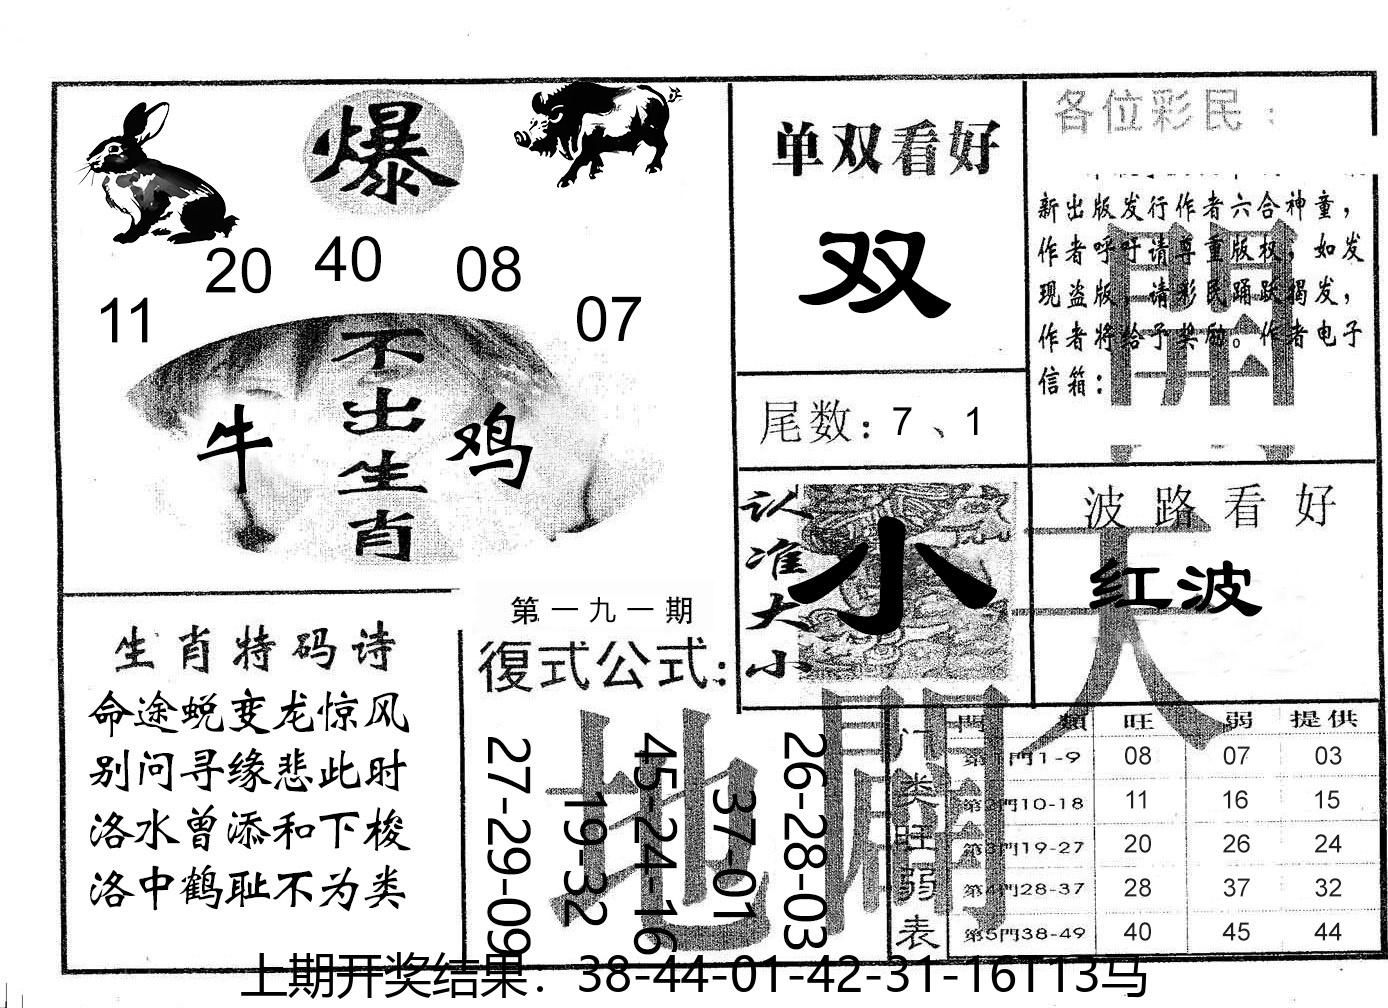 爆
20 40 08
11 07
不出生肖
牛 鸡
单双看好
双
尾数: 7、1
各位彩民:
新出版发行作者六合神童,
作者呼吁请尊重版权,如发
现盗版,请彩民踊跃揭发,
作者将给予奖励。作者电子
信箱:
認准大小
小
波路看好
红波
天
地
開
生肖特码诗
命途蜕变龙惊风
别问寻缘悲此时
洛水曾添和下梭
洛中鹤耻不为类
第一九一期
復式公式:
27-29-09
19-32
45-24-16
37-01
26-28-03
门类旺弱表
門類 旺 弱 提供
第1門1-9 08 07 03
第2門10-18 11 16 15
第3門19-27 20 26 24
第4門28-37 28 37 32
第5門38-49 40 45 44
上期开奖结果:38-44-01-42-31-16T13马